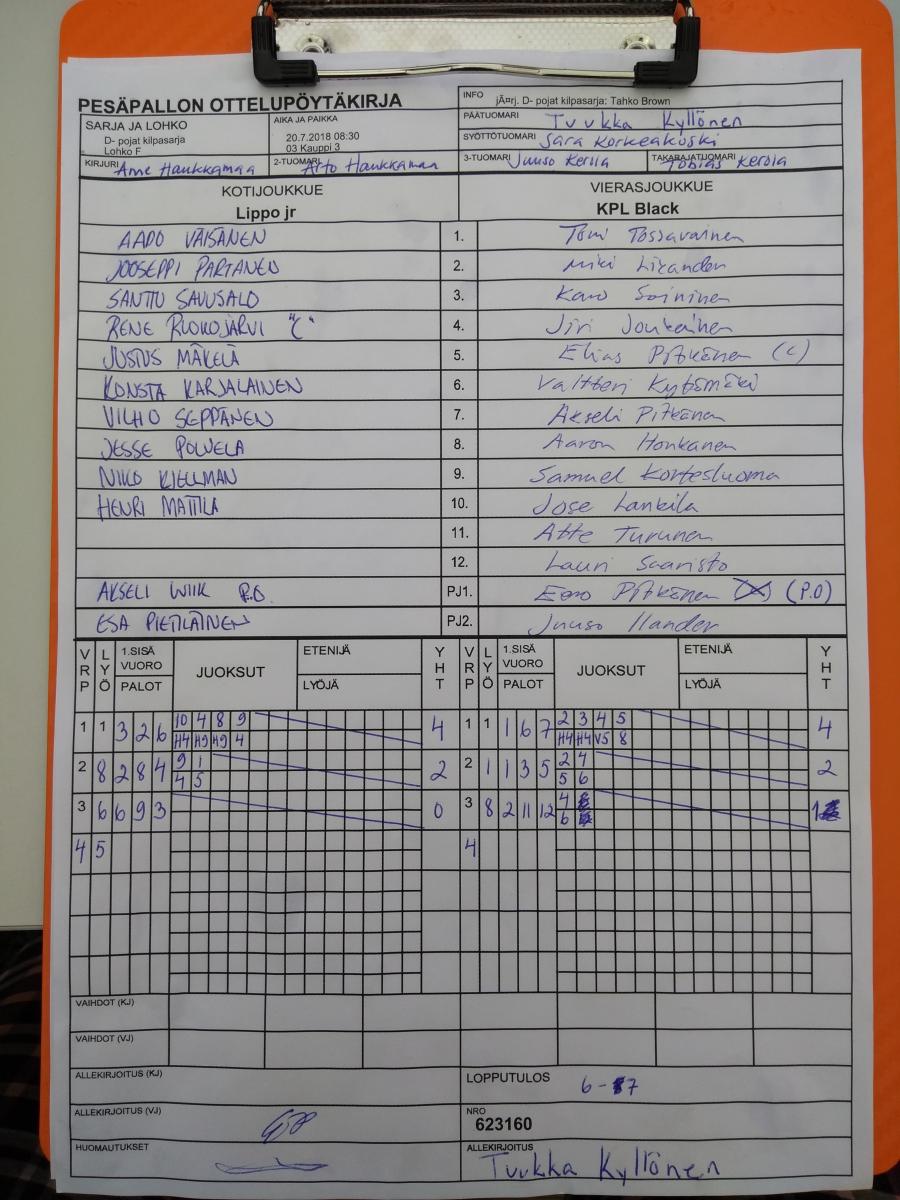 PESÄPALLON OTTELUPÖYTÄKIRJA
INFO jÃ¤rj. D- pojat kilpasarja: Tahko Brown
SARJA JA LOHKO
D- pojat kilpasarja
Lohko F
AIKA JA PAIKKA
20.7.2018 08:30
03 Kauppi 3
PÄÄTUOMARI Tuukka Kyllönen
SYÖTTÖTUOMARI Sara Korkeakoski
KIRJURI Anne Haukkamaa 2-TUOMARI Arto Haukkamaa 3-TUOMARI Juuso Kerola TAKARAJATUOMARI Tobias Kerola
KOTIJOUKKUE VIERASJOUKKUE
Lippo jr KPL Black
AAPO VÄISÄNEN 1. Tomi Tossavainen
JOOSEPPI PARTANEN 2. Miki Licander
SANTTU SAVUSALO 3. Karo Soininen
RENE RUOKOJÄRVI "C" 4. Jiri Joukainen
JUSTUS MÄKELÄ 5. Elias Pitkänen (C)
KONSTA KARJALAINEN 6. Valtteri Kytömäki
VILHO SEPPÄNEN 7. Akseli Pitkänen
JESSE POLVELA 8. Aaron Honkanen
NIKO KJELLMAN 9. Samuel Kortesluoma
HENRI MATTILA 10. Jose Lankila
11. Atte Turunen
12. Lauri Saaristo
AKSELI WIIK P.O. PJ1. Eero Pitkänen (P.O)
ESA PIETILÄINEN PJ2. Juuso Ilander
VRP LYÖ 1.SISÄ VUORO PALOT JUOKSUT ETENIJÄ LYÖJÄ YHT VRP LYÖ 1.SISÄ VUORO PALOT JUOKSUT ETENIJÄ LYÖJÄ YHT
1 1 3 2 6 10 4 8 9 4 1 1 1 6 7 2 3 4 5 4
H4 H9 H9 4 H4 H4 V5 8
2 8 2 8 4 9 1 2 2 1 1 3 5 2 4 2
4 5 5 6
3 6 6 9 3 0 3 8 2 11 12 4 1
6
4 5 4
VAIHDOT (KJ)
VAIHDOT (VJ)
ALLEKIRJOITUS (KJ) LOPPUTULOS 6-7
ALLEKIRJOITUS (VJ) NRO
623160
HUOMAUTUKSET ALLEKIRJOITUS
Tuukka Kyllönen